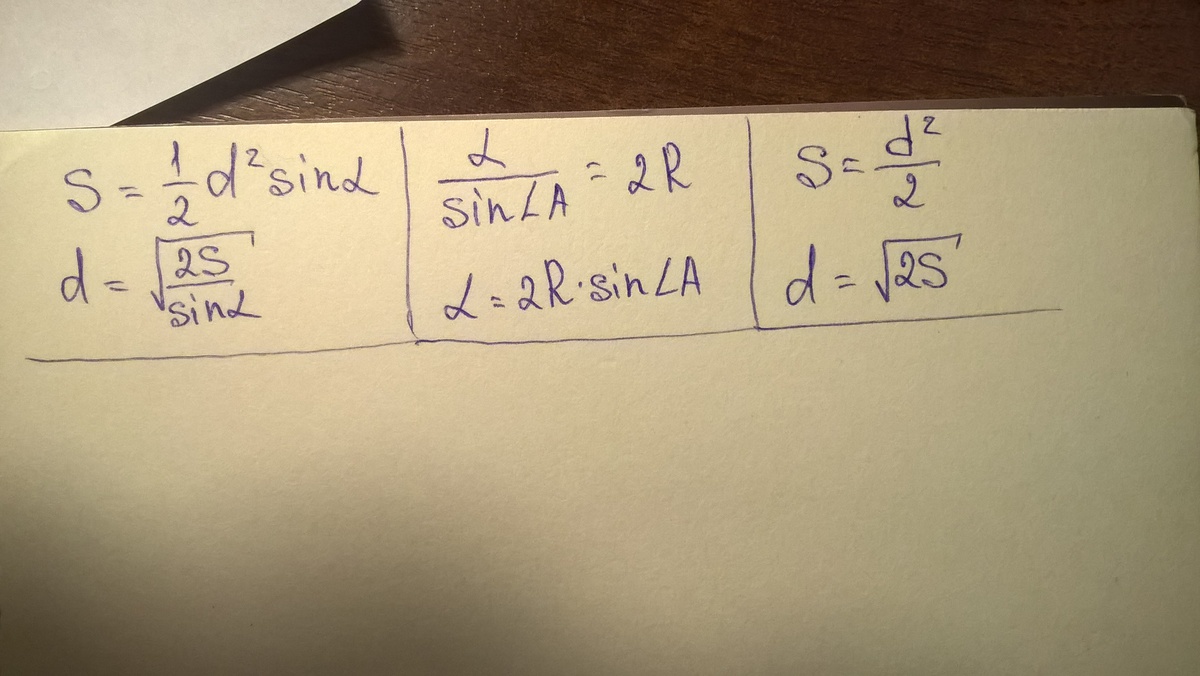 S = 1/2 d² sinα
d = √(2S/sinα)
α/sin∠A = 2R
α = 2R·sin∠A
S = d²/2
d = √2S